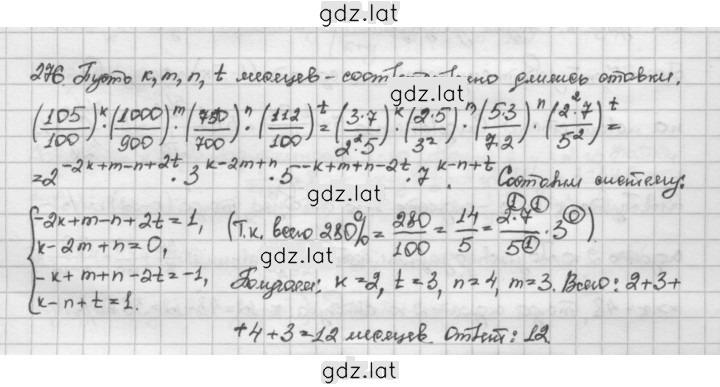 gdz.lat
276. Пусть k, m, n, t месяцев – соответственно длились ставки.
(105/100)^k · (1000/900)^m · (750/700)^n · (112/100)^t = (3·7/2²·5)^k · (2·5/3²)^m · (5·3/7·2)^n · (2²·7/5²)^t =
gdz.lat
= 2^(-2k+m-n+2t) · 3^(k-2m+n) · 5^(-k+m+n-2t) · 7^(k-n+t). Составим систему:
gdz.lat
{-2k+m-n+2t=1,
k-2m+n=0,
-k+m+n-2t=-1,
k-n+t=1.
(Т.к. всего 280% = 280/100 = 14/5 = 2^①·7^①/5^① · 3^⓪).
Получаем: k=2, t=3, n=4, m=3. Всего: 2+3+
gdz.lat
+4+3=12 месяцев. Ответ: 12
gdz.lat